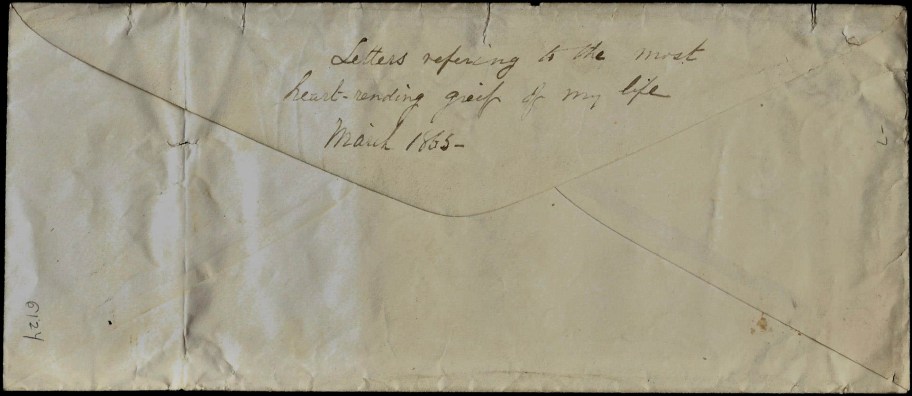 Letters refering to the most
heart-rending grief of my life
March 1863-
6124